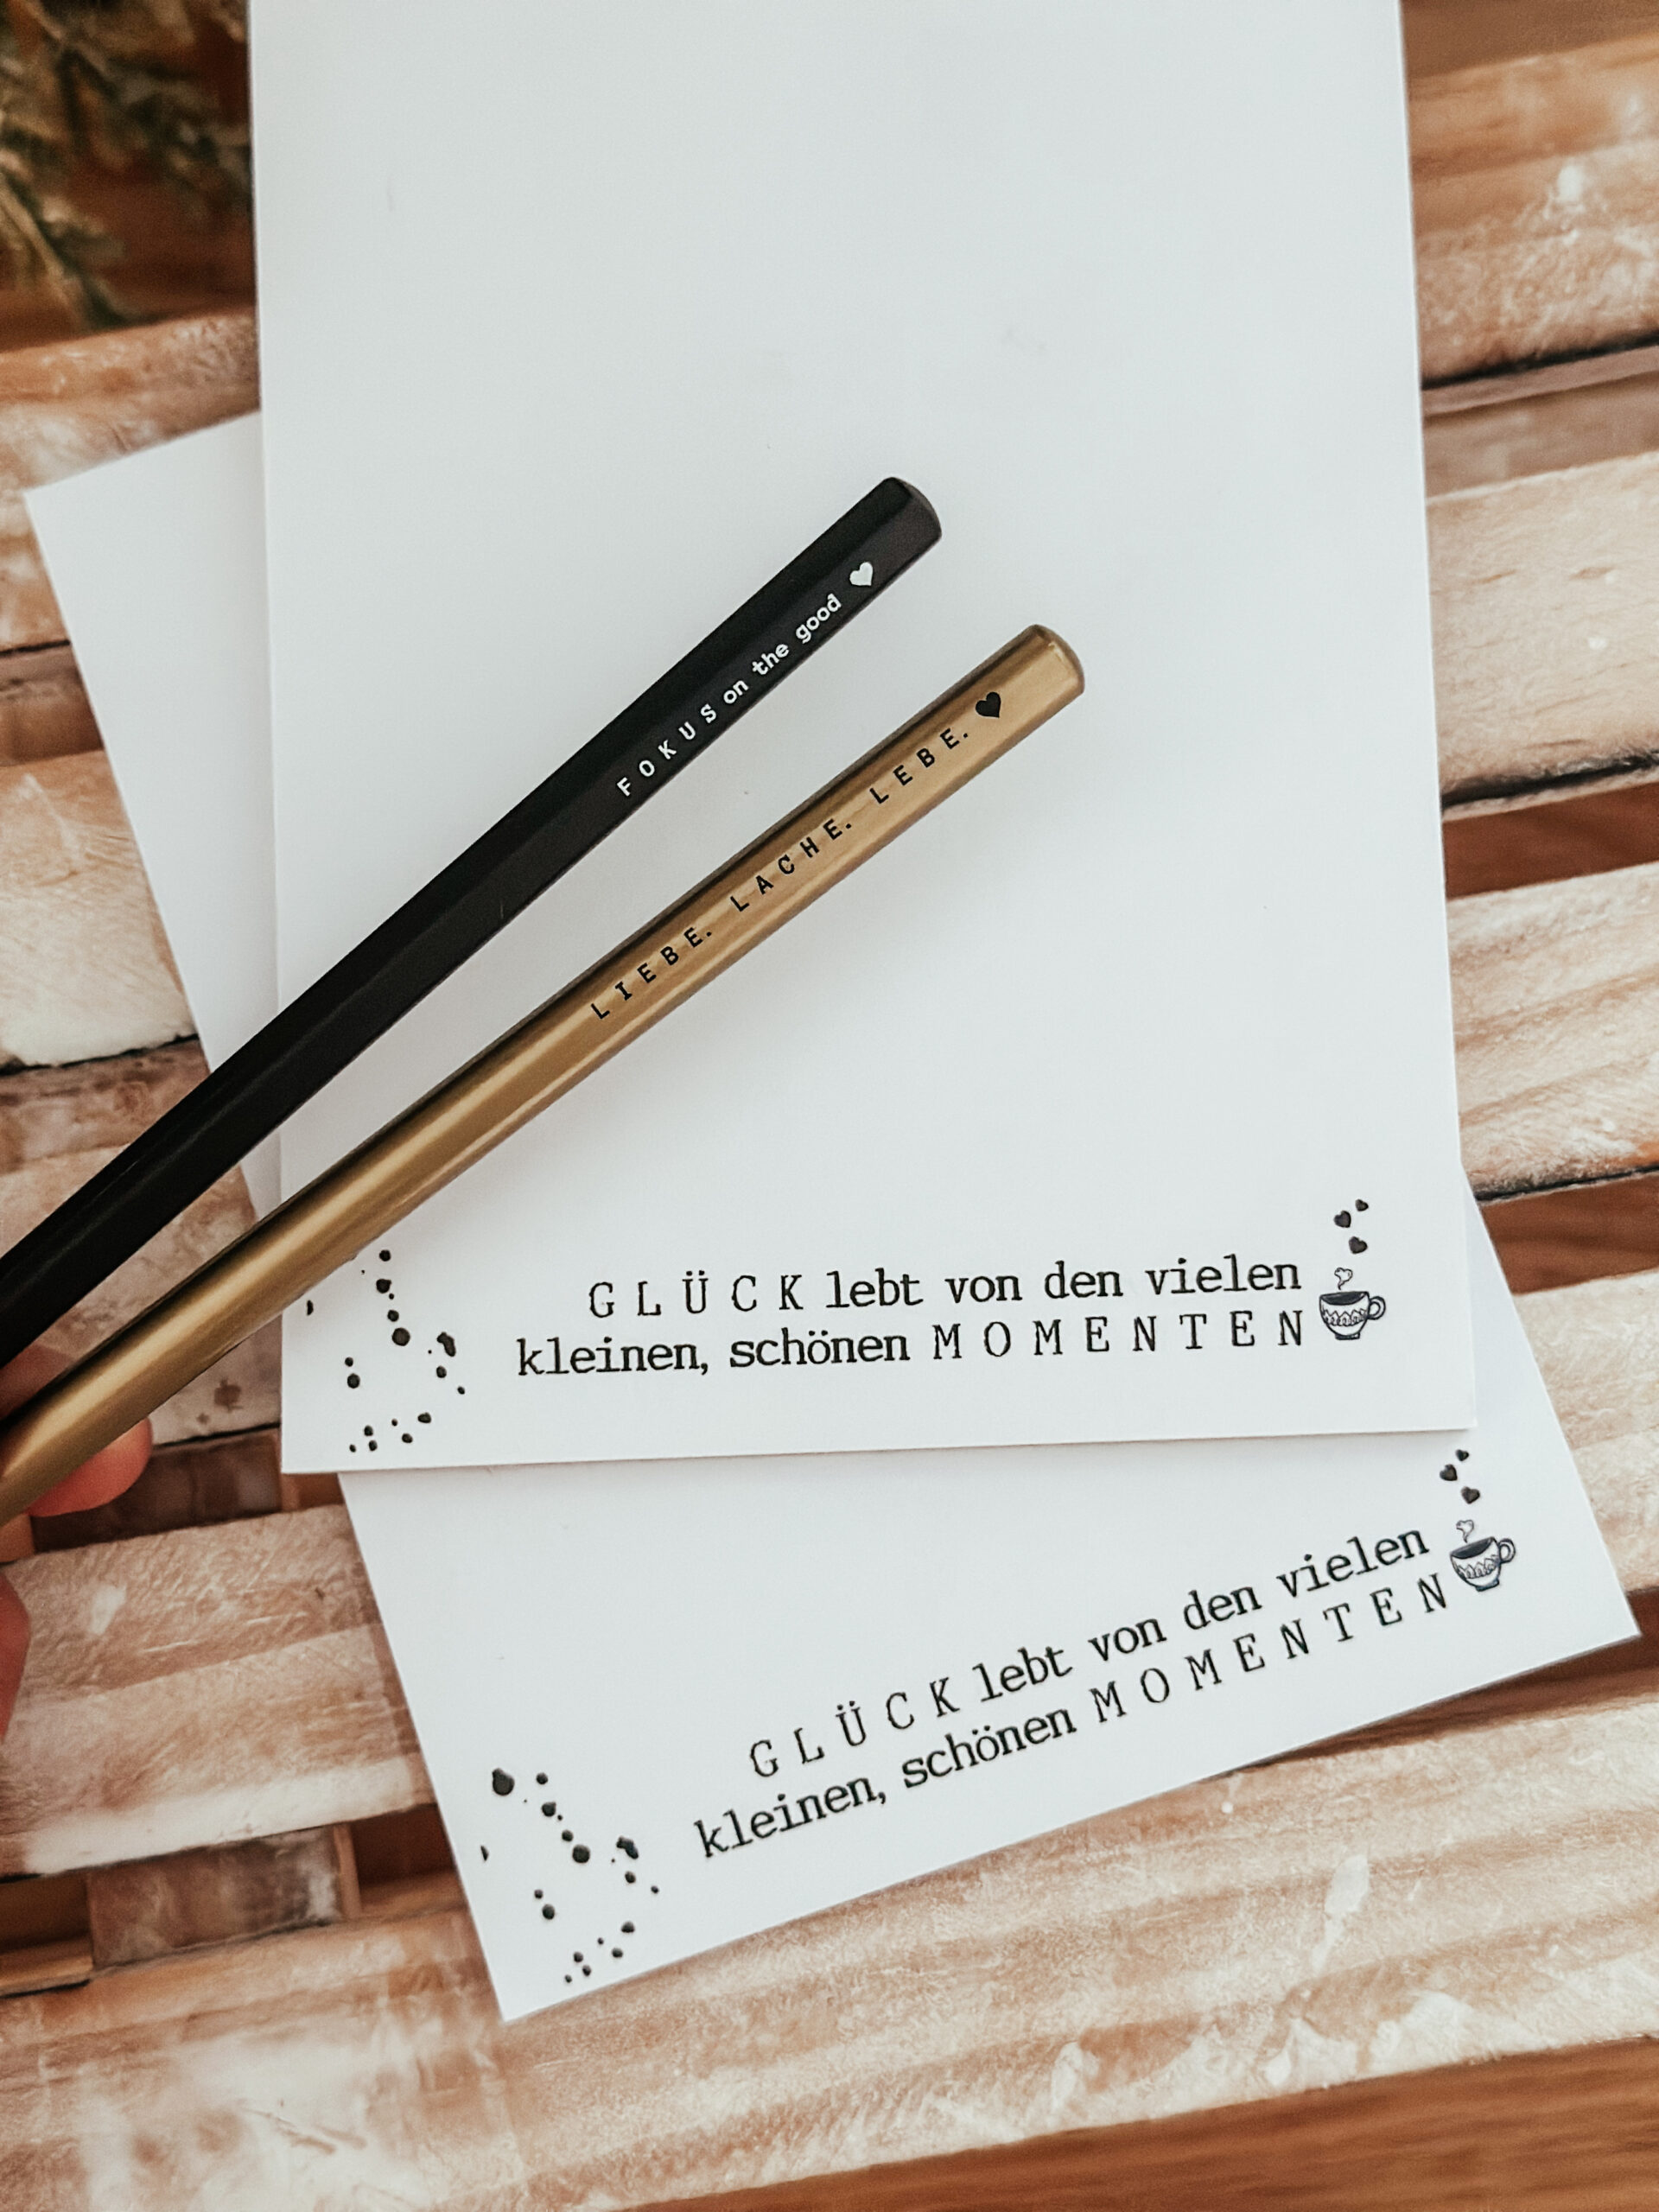 FOKUS on the good
LIEBE. LACHE. LEBE.
GLÜCK lebt von den vielen
kleinen, schönen MOMENTEN
GLÜCK lebt von den vielen
kleinen, schönen MOMENTEN